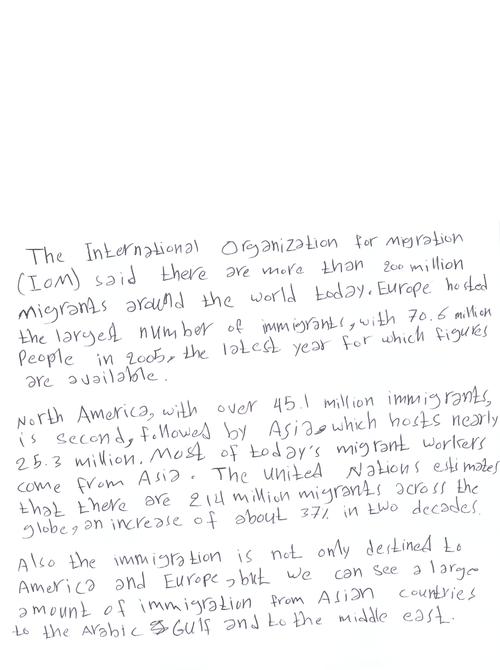 The International Organization for migration
(IOM) said there are more than 200 million
migrants around the world today. Europe hosted
the largest number of immigrants, with 70.6 million
People in 2005, the latest year for which figures
are available.
North America, with over 45.1 million immigrants,
is second, followed by Asia, which hosts nearly
25.3 million. Most of today's migrant workers
come from Asia. The united Nations estimates
that there are 214 million migrants across the
globe, an increase of about 37% in two decades.
Also the immigration is not only destined to
America and Europe, but we can see a large
amount of immigration from Asian countries
to the Arabic Gulf and to the middle east.